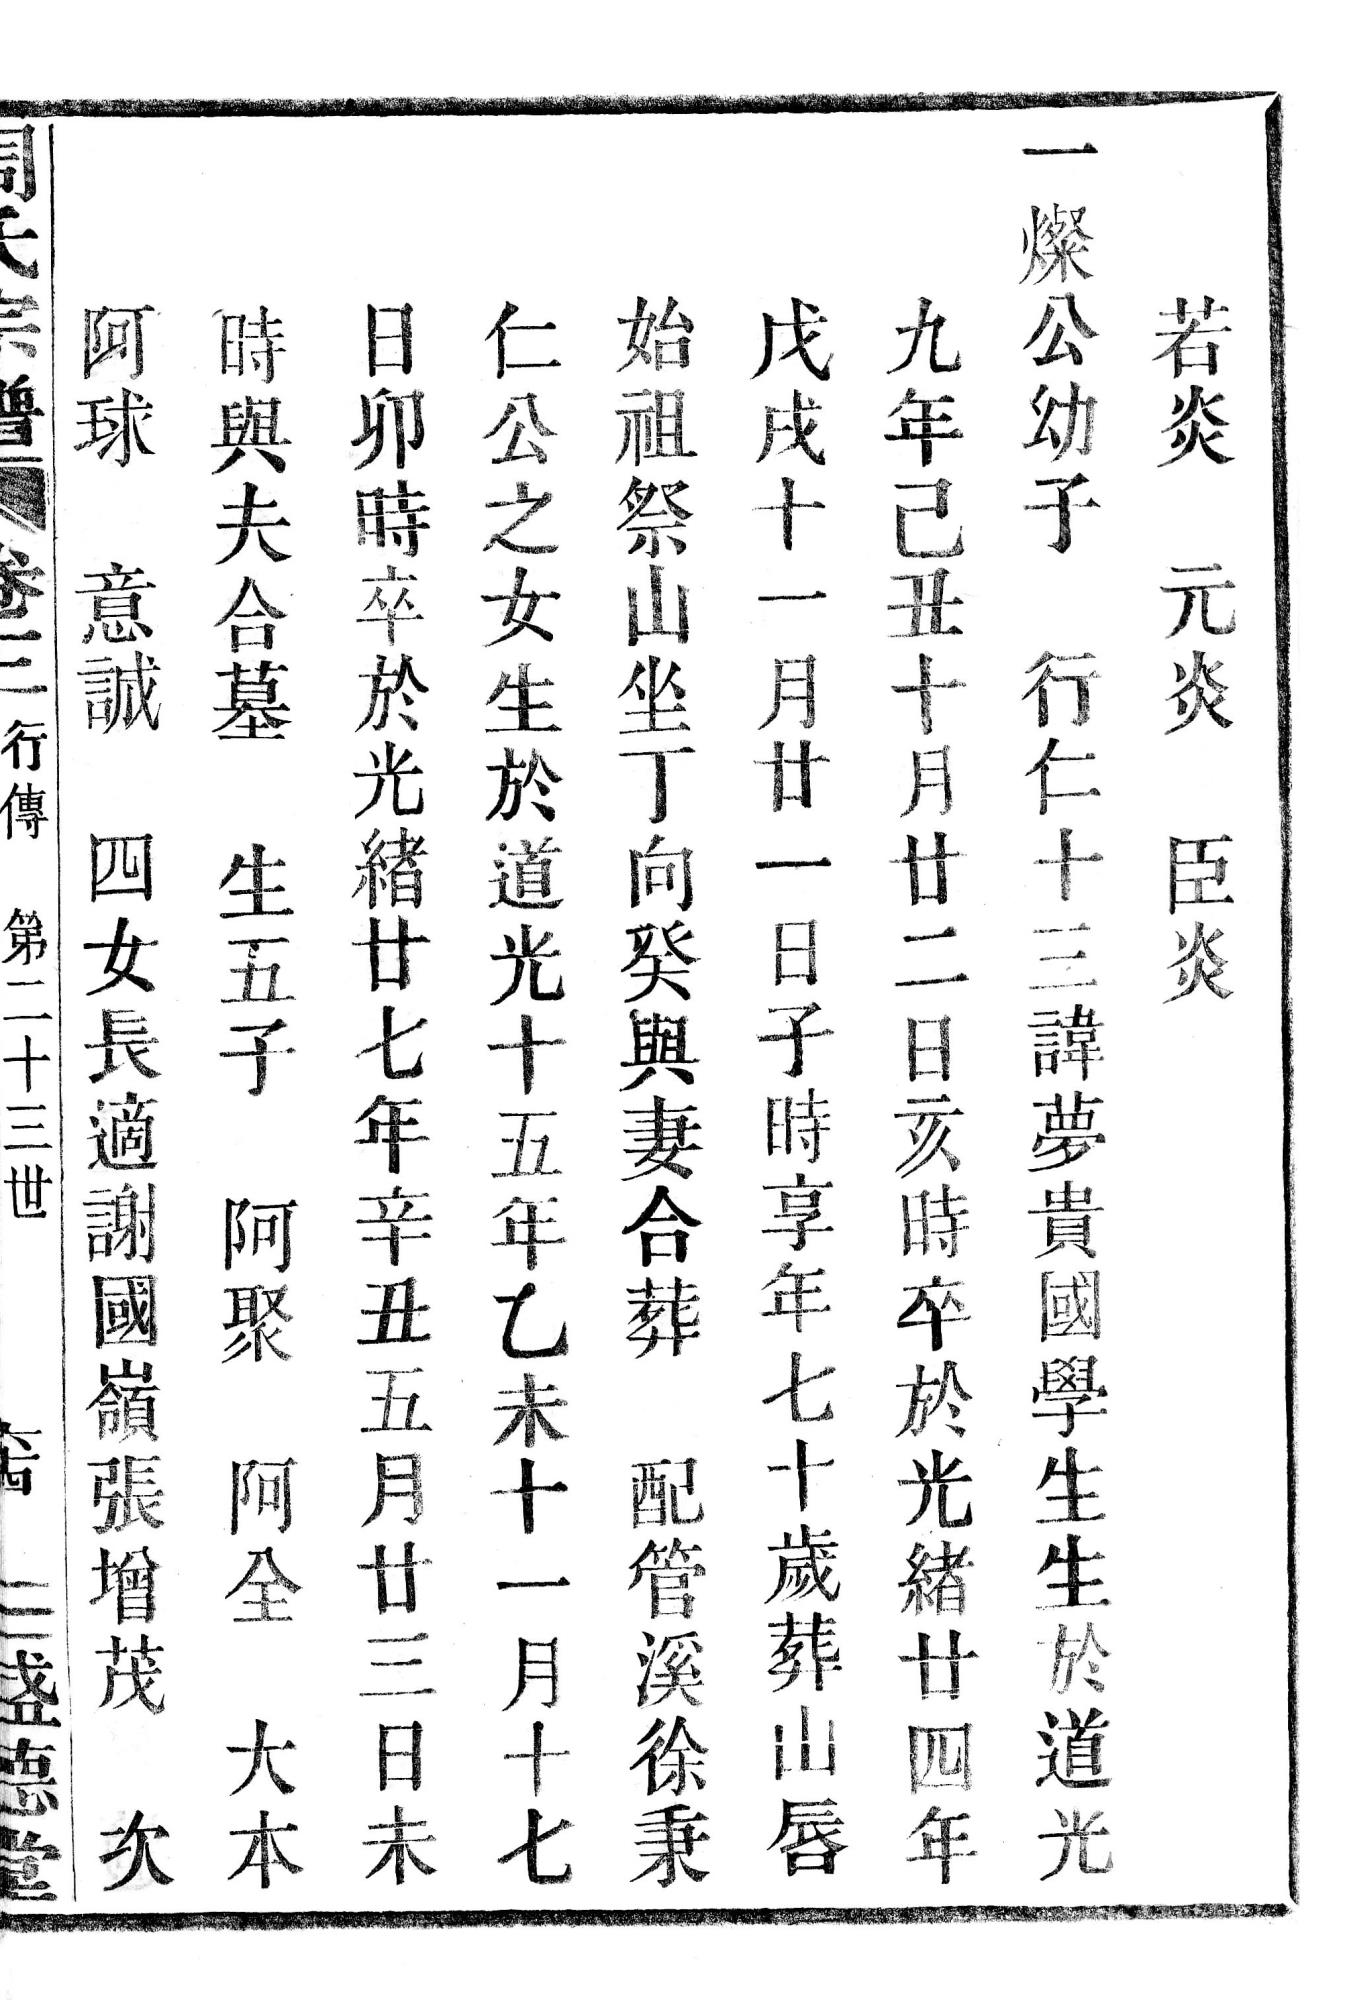 若炎　元炎　臣炎
一燦公幼子　行仁十三諱夢貴國學生生於道光
九年己丑十月廿二日亥時卒於光緒廿四年
戊戌十一月廿一日子時享年七十歲葬山唇
始祖祭山坐丁向癸與妻合葬　配管溪徐秉
仁公之女生於道光十五年乙未十一月十七
日卯時卒於光緒廿七年辛丑五月廿三日未
時與夫合墓　生五子　阿聚　阿全　大本
阿球　意誠　四女長適謝國嶺張增茂　次
周氏宗譜　卷三　行傳　第二十三世　盛德堂